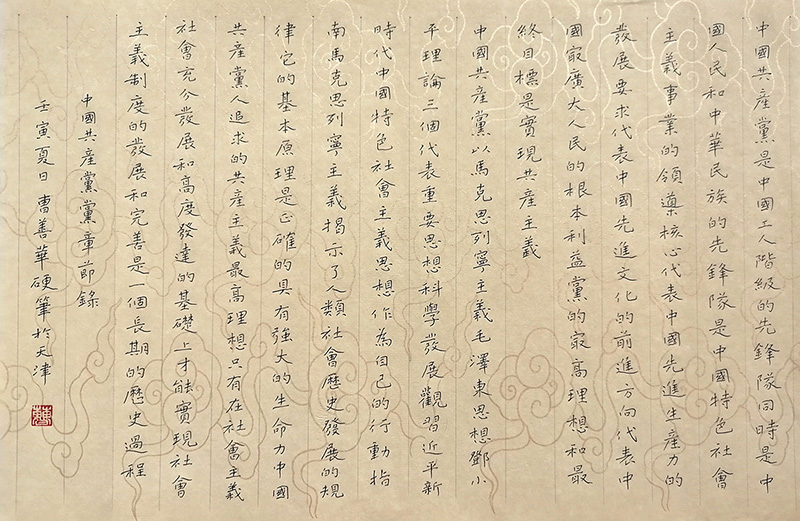 中國共產黨是中國工人階級的先鋒隊同時是中
國人民和中華民族的先鋒隊是中國特色社會
主義事業的領導核心代表中國先進生產力的
發展要求代表中國先進文化的前進方向代表中
國最廣大人民的根本利益黨的最高理想和最
終目標是實現共產主義
中國共產黨以馬克思列寧主義毛澤東思想鄧小
平理論三個代表重要思想科學發展觀習近平新
時代中國特色社會主義思想作為自己的行動指
南馬克思列寧主義揭示了人類社會歷史發展的規
律它的基本原理是正確的具有強大的生命力中國
共產黨人追求的共產主義最高理想只有在社會主義
社會充分發展和高度發達的基礎上才能實現社會
主義制度的發展和完善是一個長期的歷史過程
中國共產黨黨章節錄
壬寅夏日曹善華硬筆於天津